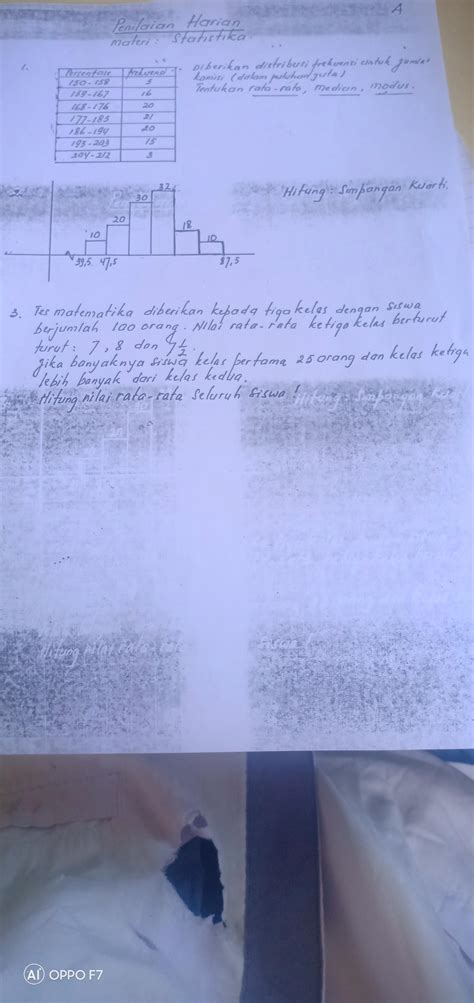 A
Penilaian Harian
materi : Statistika
1.
Diberikan distribusi frekuensi untuk jumlah
komisi (dalam puluhan juta)
Tentukan rata-rata, median, modus.
Persentase frekuensi
150-158 5
159-167 16
168-176 20
177-185 21
186-194 20
195-203 15
204-212 3
2.
Hitung : Simpangan Kuarti
10 20 30 32 18 10
39,5 47,5 87,5
3. Tes matematika diberikan kepada tiga kelas dengan siswa
berjumlah 100 orang. Nilai rata-rata ketiga kelas berturut
turut : 7, 8 dan 7 1/2.
Jika banyaknya siswa kelas pertama 25 orang dan kelas ketiga
lebih banyak dari kelas kedua.
Hitung nilai rata-rata seluruh siswa !
Hitung : Simpangan Kuar
Hitung nilai rata-rata siswa !
AI OPPO F7